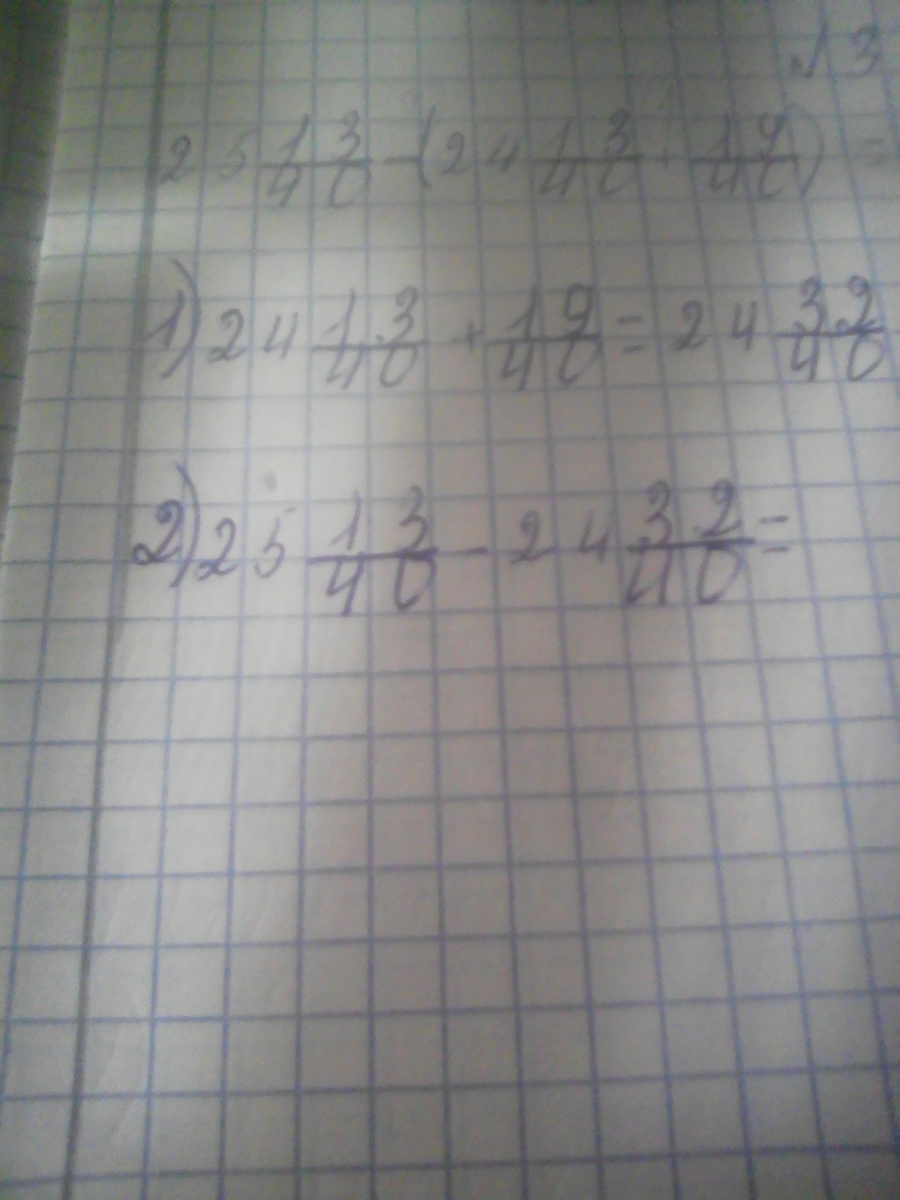 № 3
25 13/40 - (24 13/40 + 19/40) =
1) 24 13/40 + 19/40 = 24 32/40
2) 25 13/40 - 24 32/40 =